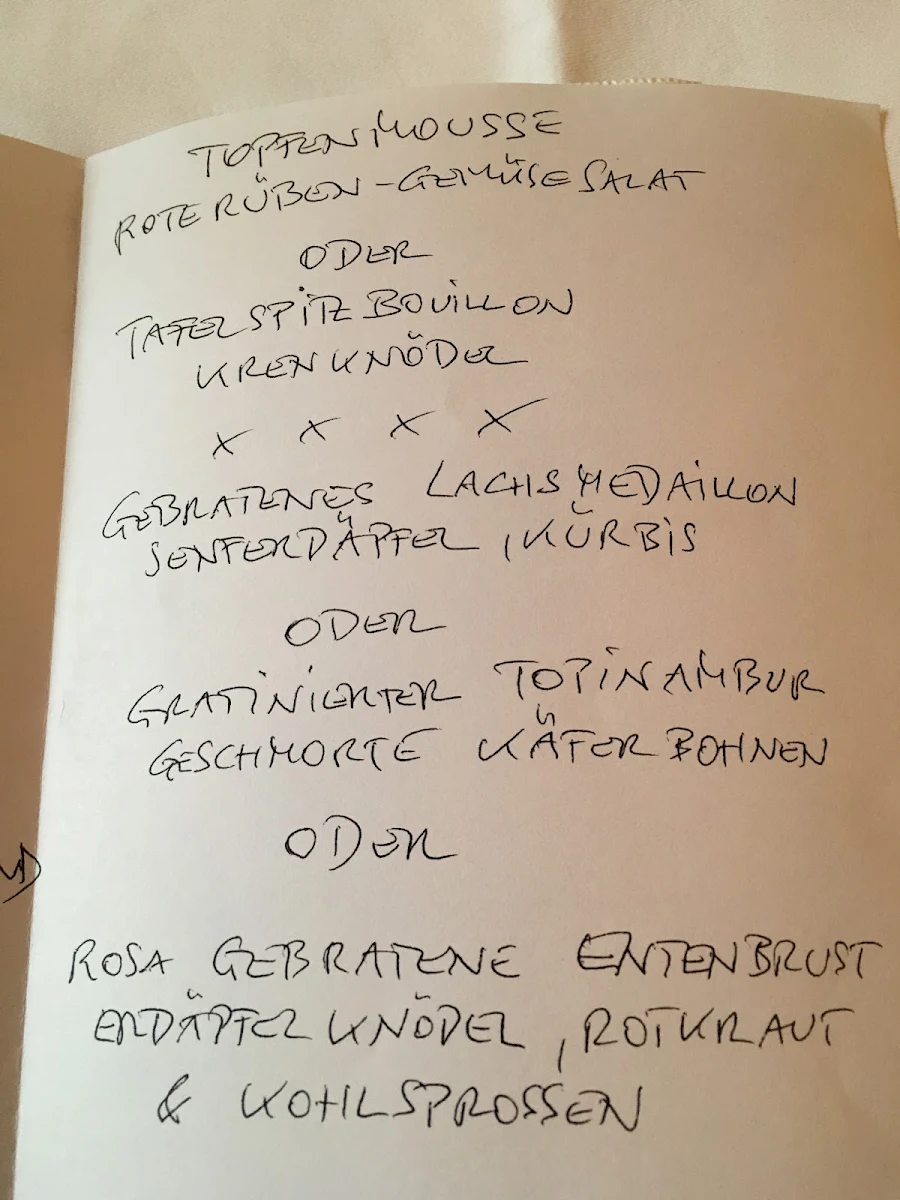 TOPFENMOUSSE
ROTE RÜBEN-GEMÜSESALAT
ODER
TAFELSPITZBOUILLON
KRENKNÖDEL
X X X X
GEBRATENES LACHSMEDAILLON
SENFERDÄPFEL, KÜRBIS
ODER
GRATINIERTER TOPINAMBUR
GESCHMORTE KÄFERBOHNEN
ODER
ROSA GEBRATENE ENTENBRUST
ERDÄPFELKNÖDEL, ROTKRAUT
& KOHLSPROSSEN